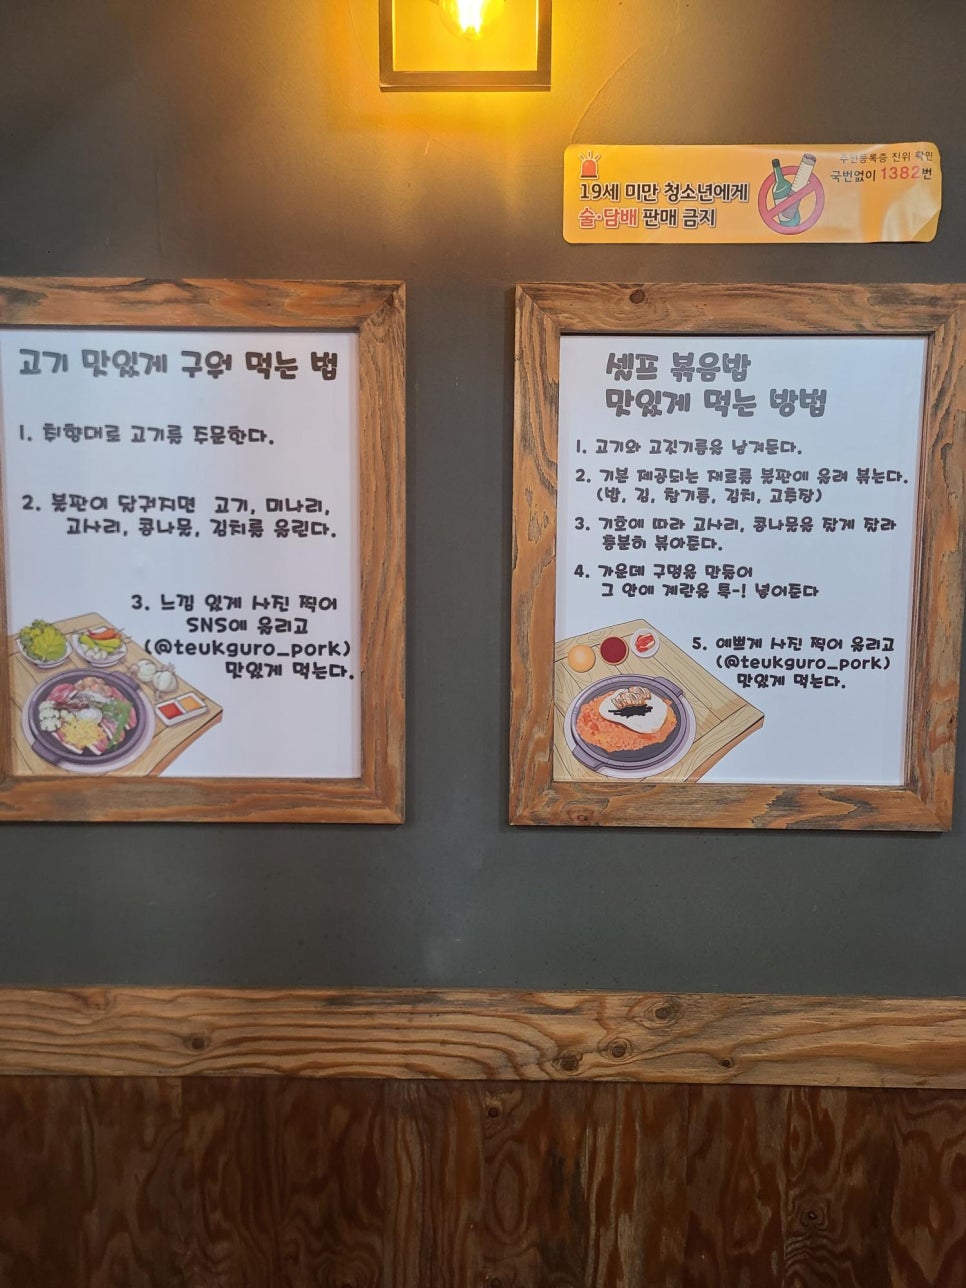 19세 미만 청소년에게
술·담배 판매 금지
주민등록증 진위 확인
국번없이 1382번
고기 맛있게 구워 먹는 법
1. 취향대로 고기를 주문한다.
2. 불판이 달궈지면 고기, 미나리,
고사리, 콩나물, 김치를 올린다.
3. 느낌 있게 사진 찍어
SNS에 올리고
(@teukguro_pork)
맛있게 먹는다.
셀프 볶음밥
맛있게 먹는 방법
1. 고기와 고깃기름을 남겨둔다.
2. 기본 제공되는 재료를 불판에 올려 볶는다.
(밥, 김, 참기름, 김치, 고추장)
3. 기호에 따라 고사리, 콩나물을 잘게 잘라
충분히 볶아준다.
4. 가운데 구멍을 만들어
그 안에 계란을 톡-! 넣어준다
5. 예쁘게 사진 찍어 올리고
(@teukguro_pork)
맛있게 먹는다.